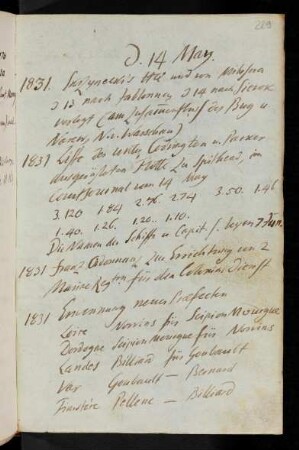 229
D. 14 May.
1831. Skrzynecki's und von
d 13 nach Jablonna, d 14 nach Sierock
verlegt (am Zusammenfluss des Bug u
Narew, N. v. Warschau)
1831 Liste der unter Codrington u. Parker
ausgerüsteten Flotte zu Spithead, im
vom 14 May
3. 120 1. 84 2. 76 2. 74 3. 50. 1. 46.
1. 40. 1. 26. 1. 20. 1. 10.
Die Namen der Schiffe u Capit. s.
1831 Franz. zur Errichtung von 2
Marine Regtern für den Colonial Dienst
1831 Ernennung neuer Präfecten
Loire für Scipion Mourgue
Dordogne Scipion Mourgue für
Landes Billiard für Goubault
Var Goubault — Bernard
Finistère Pellenc — Billiard